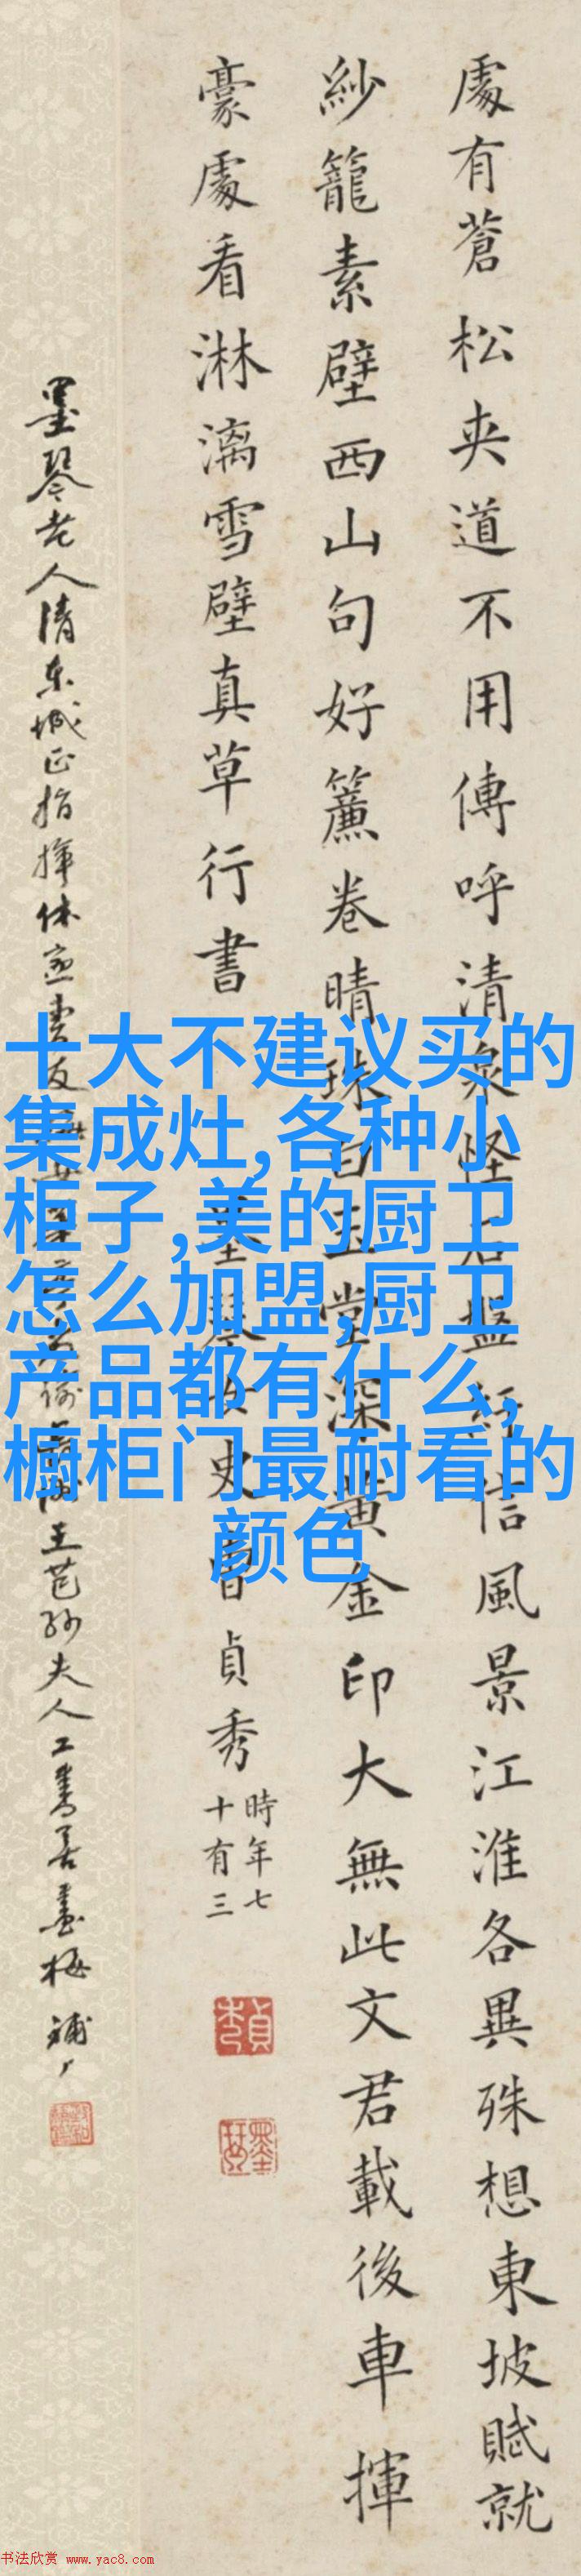 處有蒼松夾道不用傳呼清泉怪石盤紆信風景江淮各異殊想東坡賦就
紗籠素壁西山句好簾卷晴珠白玉堂深黃金印大無此文君載後車揮
豪處看淋漓雪壁真草行書
墨琴女史曹貞秀
時年七
十有三
墨琴老人清东城正指挥
王芑孙夫人工書善畫梅
十大不建议买的
集成灶,各种小
柜子,美的厨卫
怎么加盟,厨卫
产品都有什么,
橱柜门最耐看的
颜色
书法欣赏 www.yac8.com